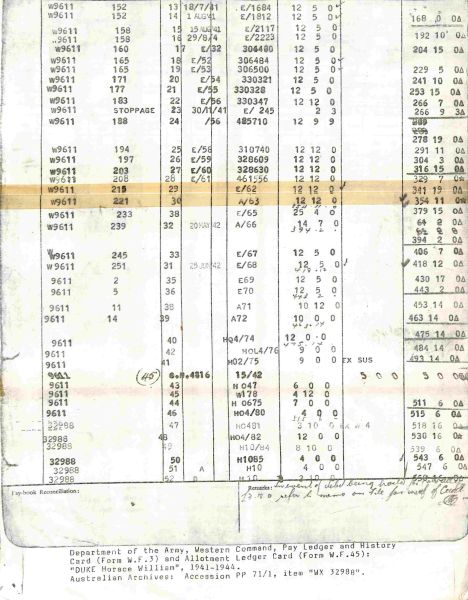 w9611 152 13 18/7/41 E/1684 12 5 0
w9611 152 14 1 AUG 41 E/1812 12 5 0 168 0 0Δ
w9611 158 15 15 AUG 41 E/2117 12 5 0
w9611 158 16 29/8/4 E/2223 12 5 0 192 10 0Δ
w9611 160 17 E/32 306480 12 5 0 204 15 0Δ
w9611 165 18 E/52 306484 12 5 0
w9611 165 19 E/53 306500 12 5 0 229 5 0Δ
w9611 171 20 E/54 330321 12 5 0 241 10 0Δ
w9611 177 21 E/55 330328 12 5 0 253 15 0Δ
w9611 183 22 E/56 330347 12 12 0 266 7 0Δ
STOPPAGE 23 30/11/41 E/ 245 2 3 266 9 3Δ
w9611 188 24 /56 485710 12 9 9
278 19 0Δ
w9611 194 25 E/58 310740 12 12 0 291 11 0Δ
w9611 197 26 E/59 328609 12 12 0 304 3 0Δ
w9611 203 27 E/60 328630 12 12 0 316 15 0Δ
w9611 208 28 E/61 461556 12 12 0 329 7 0Δ
w9611 215 29 E/62 12 12 0 341 19 0Δ
w9611 221 30 A/63 12 12 0 354 11 0Δ
w9611 233 38 E/65 25 4 0 379 15 0Δ
w9611 239 32 20 MAY 42 A/66 14 7 0
394 2 0Δ
w9611 245 33 E/67 12 5 0 406 7 0Δ
w9611 251 31 25 JUN 42 E/68 12 5 0 418 12 0Δ
9611 2 35 E69 12 5 0 430 17 0Δ
9611 5 36 E70 12 5 0 443 2 0Δ
9611 11 38 A71 10 12 0 453 14 0Δ
9611 14 39 A72 10 0 0 463 14 0Δ
9611 40 HQ4/74 12 0 0 475 14 0Δ
9611 42 MOL4/76 9 0 0 484 14 0Δ
9611 41 M02/75 9 0 0 EX SUS 493 14 0Δ
9611 45 4816 15/42 5 0 0 5 0 0Δ
9611 43 H 047 6 0 0
9611 45 W178 4 12 0
9611 44 H 0675 7 0 0 511 6 0Δ
9611 46 H04/80 4 0 0 515 6 0Δ
32988 47 HO481 3 10 0 518 16 0Δ
32988 48 H04/82 12 0 0 530 16 0Δ
32988 49 H10/84 8 10 0 539 6 0Δ
32988 50 H1085 4 0 0 543 6 0Δ
32988 51 A H10 4 0 0 547 6 0Δ
32988 52
Pay-book Reconciliation: Remarks: In event of debit being
refer to memo on file
Department of the Army, Western Command, Pay Ledger and History
Card (Form W.F.3) and Allotment Ledger Card (Form W.F.45):
"DUKE Horace William", 1941-1944.
Australian Archives: Accession PP 71/1, item "WX 32988".